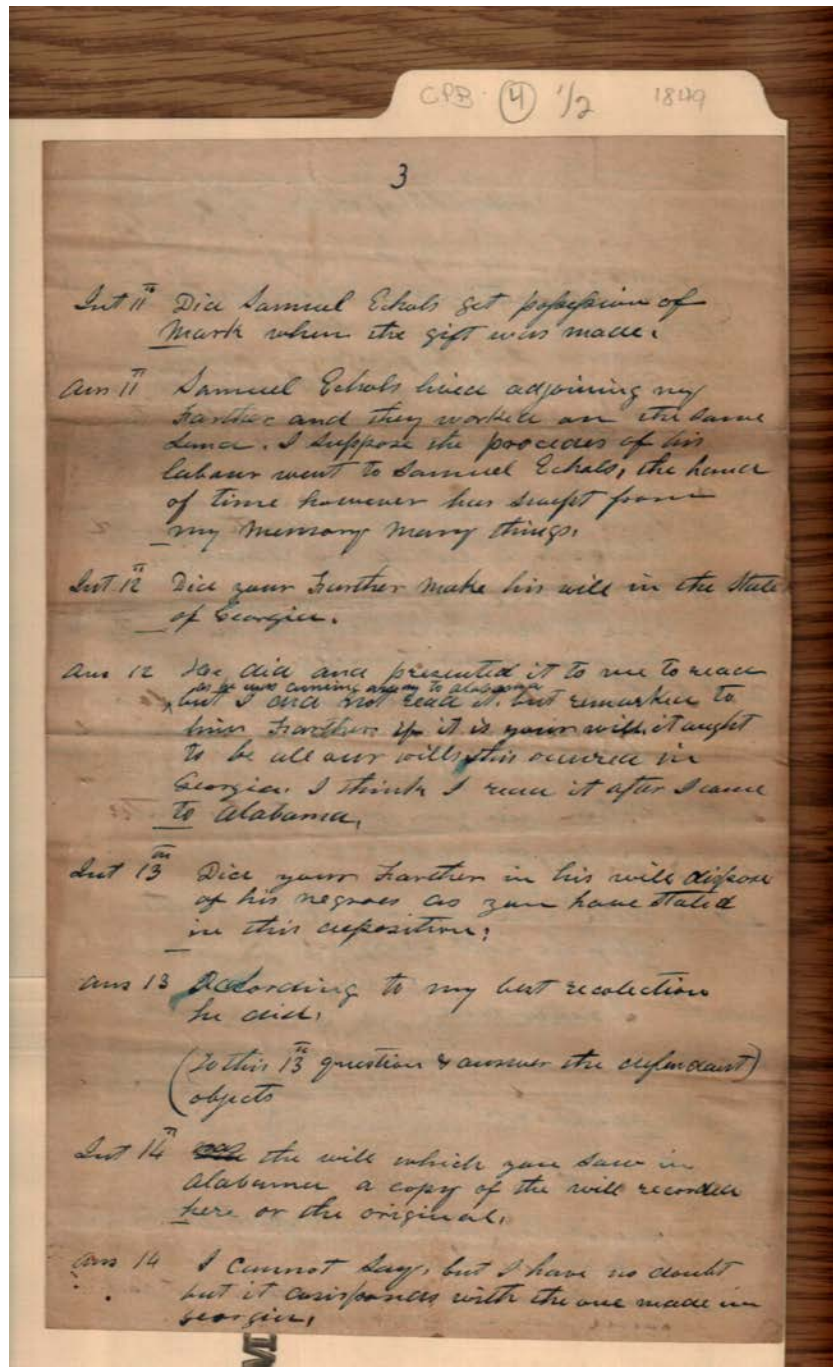 CPB. 4 1/2 1849
3
Int 11th Did Samuel Echols get possession of
Mark when the gift was made.
Ans 11th Samuel Echols lived adjoining my
Farther and they worked on the same
Land. I suppose the procedes of his
labour went to Samuel Echols, the hand
of time however has swept from
my memory many things.
Int 12th Did your Farther make his will in the State
of Georgia.
Ans 12 He did and presented it to me to read
as he was coming away to alabama
but I did not read it. but remarked to
him Farther if it is your will it aught
to be all our wills this occured in
Georgia. I think I read it after I came
to Alabama,
Int 13th Did your Farther in his will dispose
of his negroes as you have stated
in this deposition;
Ans 13 According to my best recolection
he did,
(To this 13th question & answer the defendant)
objects
Int 14th the will which you saw in
Alabama a copy of the will recorded
here or the original,
Ans 14 I cannot say, but I have no doubt
but it corisponds with the one made in
georgia,